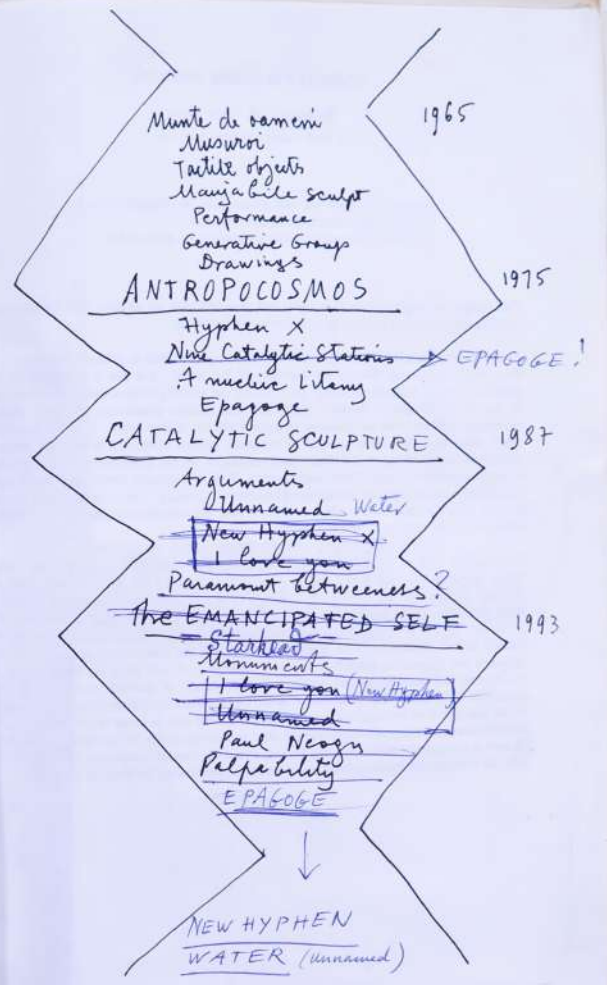 1965
Munte de oameni
Musuroi
Tactile objects
Manjabile sculpt
Performance
Generative Groups
Drawings
ANTROPOCOSMOS
1975
Hyphen X
Nine Catalytic Stations EPAGOGE!
A nuclear Litany
Epagoge
CATALYTIC SCULPTURE
1987
Arguments
Unnamed Water
New Hyphen X
I love you
Paramount betweeness?
The EMANCIPATED SELF
1993
Starhead
Monuments
I love you (New Hyphen)
Unnamed
Paul Neogu
Palpability
EPAGOGE
NEW HYPHEN
WATER (unnamed)